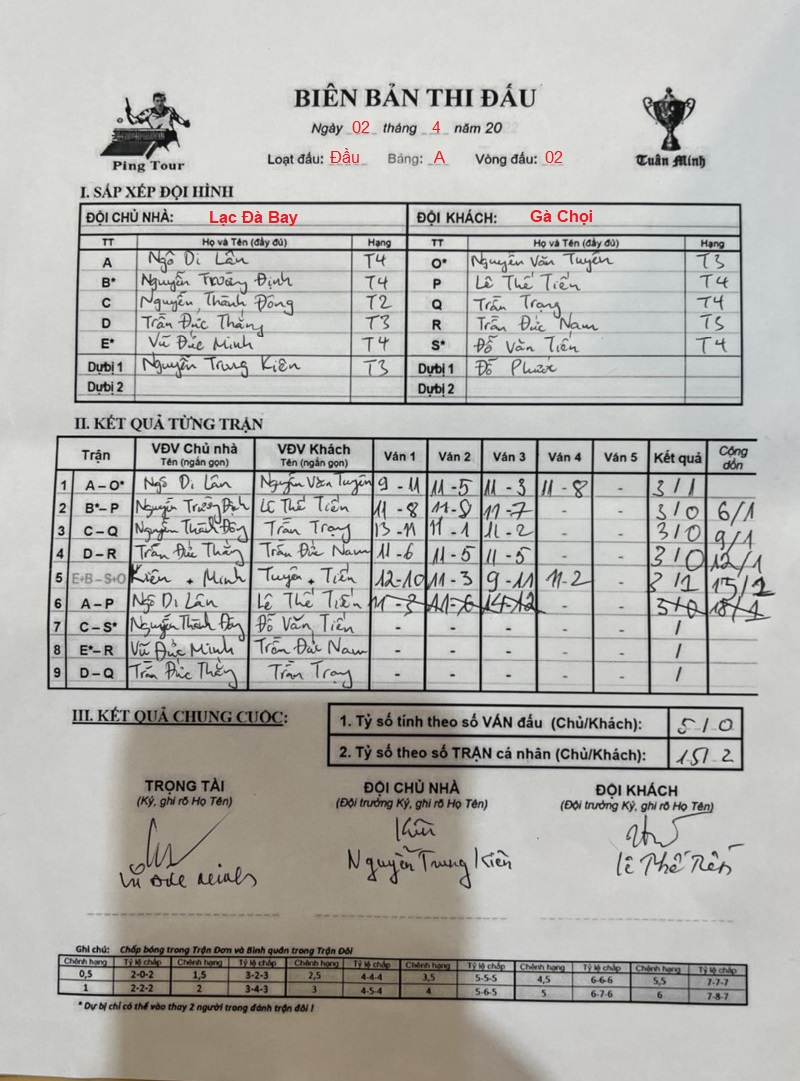 BIÊN BẢN THI ĐẤU
Ngày 02 tháng 4 năm 20
Ping Tour
Loạt đấu: Đầu Bảng: A Vòng đấu: 02
Tuấn Minh
I. SẮP XẾP ĐỘI HÌNH
ĐỘI CHỦ NHÀ: Lạc Đà Bay ĐỘI KHÁCH: Gà Chọi
TT Họ và Tên (đầy đủ) Hạng TT Họ và Tên (đầy đủ) Hạng
A Ngô Di Lân T4 O* Nguyễn Văn Tuyên T3
B* Nguyễn Trường Định T4 P Lê Thế Tiến T4
C Nguyễn Thành Đông T2 Q Trần Trạng T4
D Trần Đức Thắng T3 R Trần Đức Nam T5
E* Vũ Đức Minh T4 S* Đỗ Văn Tiến T4
Dự bị 1 Nguyễn Trung Kiên T3 Dự bị 1 Đỗ Phước
Dự bị 2 Dự bị 2
II. KẾT QUẢ TỪNG TRẬN
Trận VĐV Chủ nhà Tên (ngắn gọn) VĐV Khách Tên (ngắn gọn) Ván 1 Ván 2 Ván 3 Ván 4 Ván 5 Kết quả Cộng dồn
1 A – O* Ngô Di Lân Nguyễn Văn Tuyên 9 - 11 11 - 5 11 - 3 11 - 8 - 3 / 1
2 B*– P Nguyễn Trường Định Lê Thế Tiến 11 - 8 11 - 8 11 - 7 - - 3 / 0 6/1
3 C – Q Nguyễn Thành Đông Trần Trạng 13 - 11 11 - 1 11 - 2 - - 3 / 0 9/1
4 D – R Trần Đức Thắng Trần Đức Nam 11 - 6 11 - 5 11 - 5 - - 3 / 0 12/1
5 E+B – S+O Kiên + Minh Tuyên + Tiến 12 - 10 11 - 3 9 - 11 11 - 2 - 3 / 1 15/2
6 A – P Ngô Di Lân Lê Thế Tiến 11 - 3 11 - 6 14 - 12 - - 3 / 0 18/1
7 C – S* Nguyễn Thành Đông Đỗ Văn Tiến - - - - - /
8 E*– R Vũ Đức Minh Trần Đức Nam - - - - - /
9 D – Q Trần Đức Thắng Trần Trạng - - - - - /
III. KẾT QUẢ CHUNG CUỘC:
1. Tỷ số tính theo số VÁN đấu (Chủ/Khách): 5 / 0
2. Tỷ số theo số TRẬN cá nhân (Chủ/Khách): 15/ 2
TRỌNG TÀI ĐỘI CHỦ NHÀ ĐỘI KHÁCH
(Ký, ghi rõ Họ Tên) (Đội trưởng Ký, ghi rõ Họ Tên) (Đội trưởng Ký, ghi rõ Họ Tên)
Kiên
Nguyễn Trung Kiên
Ghi chú: Chấp bóng trong Trận Đơn và Bình quân trong Trận Đôi
Chênh hạng Tỷ lệ chấp Chênh hạng Tỷ lệ chấp Chênh hạng Tỷ lệ chấp Chênh hạng Tỷ lệ chấp Chênh hạng Tỷ lệ chấp Chênh hạng Tỷ lệ chấp
0,5 2-0-2 1,5 3-2-3 2,5 4-4-4 3,5 5-5-5 4,5 6-6-6 5,5 7-7-7
1 2-2-2 2 3-4-3 3 4-5-4 4 5-6-5 5 6-7-6 6 7-8-7
* Dự bị chỉ có thể vào thay 2 người trong đánh trận đôi !